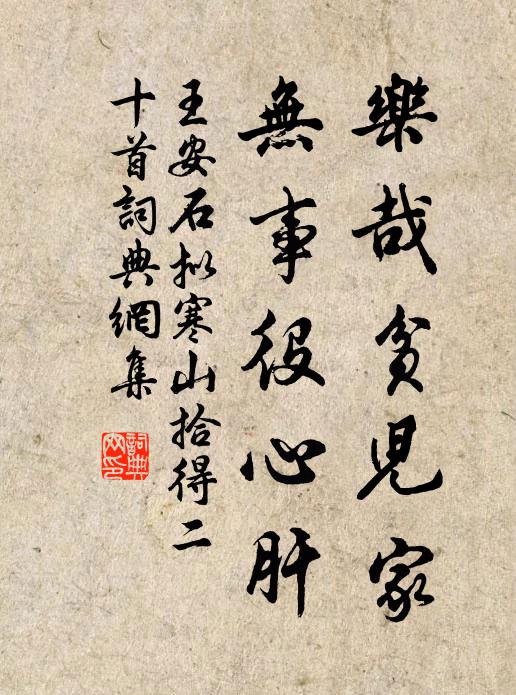 樂哉貧兒家
無事役心肝
王安石拟寒山拾得二
十首詞典網集
詞典
网印